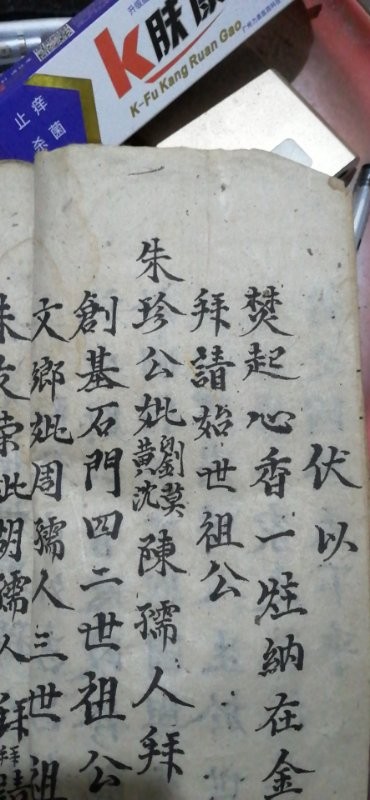 K肤康
K-Fu Kang Ruan Gao
止痒
杀菌
伏以
焚起心香一炷納在金
拜請始世祖公
朱珍公妣劉莫黃沈陳孺人拜
創基石門四二世祖公
文鄉妣周孺人三世祖
朱友荣妣胡孺人拜請